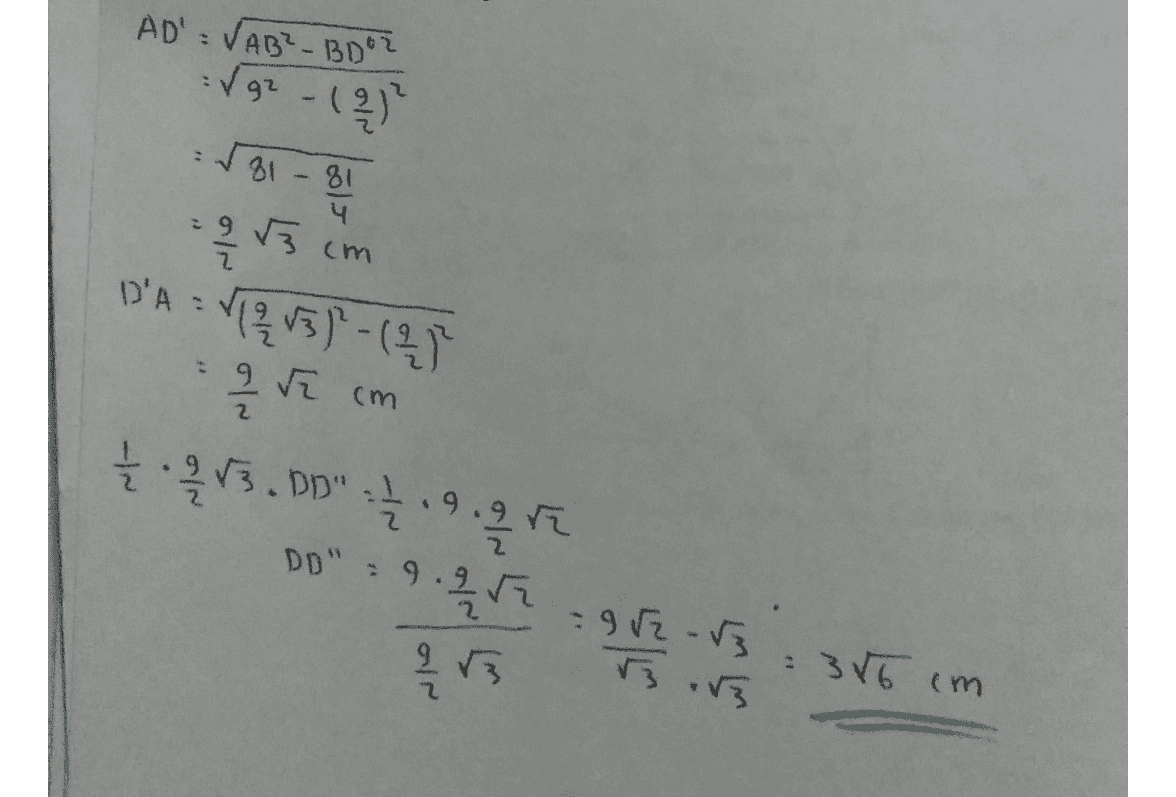 AD' = √AB² - BD'²
= √9² - (9/2)²
= √81 - 81/4
= 9/2 √3 cm
D'A = √(9/2 √3)² - (9/2)²
= 9/2 √2 cm
1/2 . 9/2 √3 . DD" = 1/2 . 9 . 9/2 √2
DD" = 9 . 9/2 √2 / 9/2 √3 = 9√2 - √3 / √3 . √3 = 3√6 cm